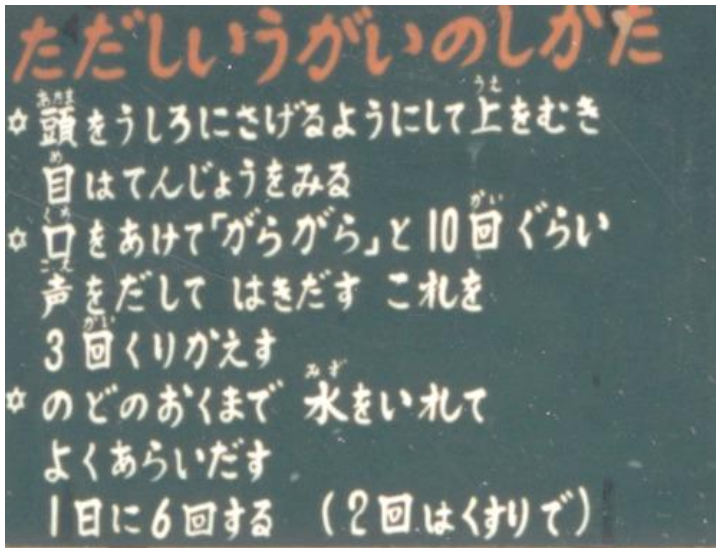 ただしいうがいのしかた
☆ 頭をうしろにさげるようにして上をむき
目はてんじょうをみる
☆ 口をあけて「がらがら」と10回ぐらい
声をだして はきだす これを
3回くりかえす
☆ のどのおくまで 水をいれて
よくあらいだす
1日に6回する (2回はくすりで)